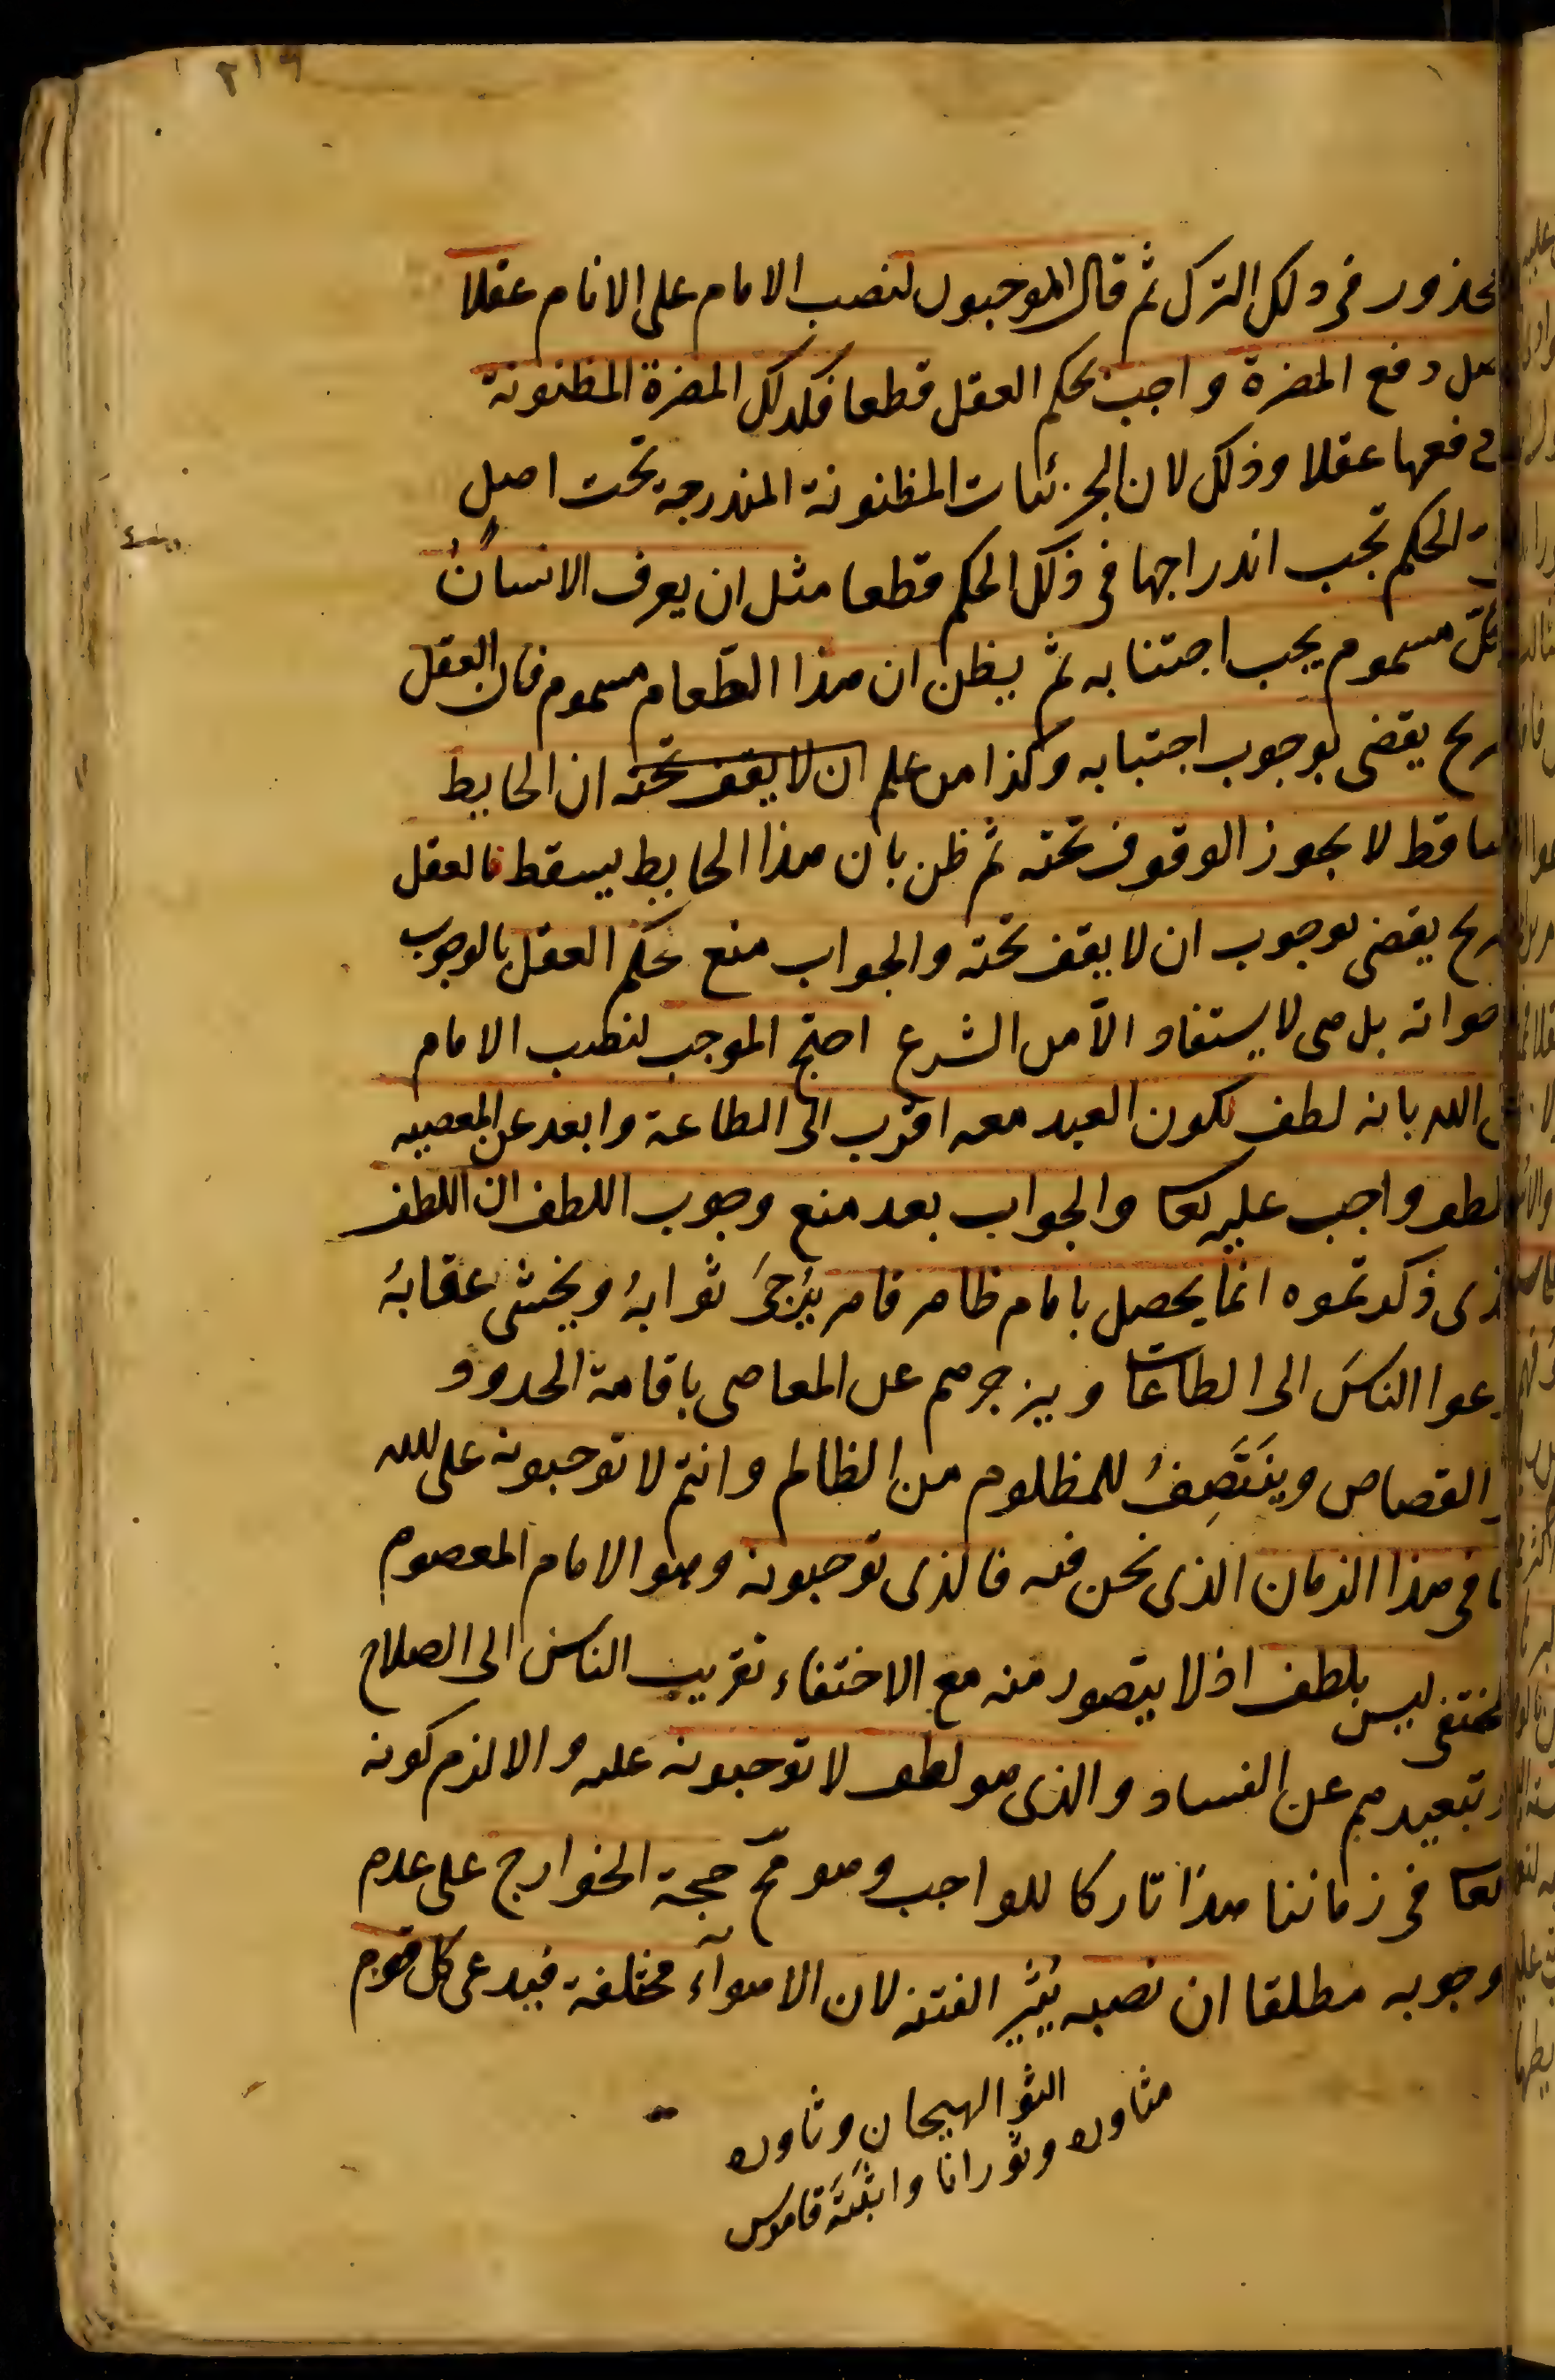 ٢١٩
محذور فى ذلك الترك ثم قال الموجبون لنصب الامام على الانام عقلا
اصل دفع المضرة واجب بحكم العقل قطعا فكذلك المضرة المظنونة
دفعها عقلا وذلك لان الجزئيات المظنونة المندرجة تحت اصل
الحكم تجب اندراجها فى ذلك الحكم قطعا مثل ان يعرف الانسان
كل مسموم يجب اجتنابه ثم يظن ان هذا الطعام مسموم فان العقل
يقضى بوجوب اجتنابه وكذا من علم ان لا يقف تحته ان الحايط
ساقط لا يجوز الوقوف تحته ثم ظن بان هذا الحايط يسقط فالعقل
يقضى بوجوب ان لا يقف تحته والجواب منع حكم العقل بالوجوب
اخواته بل هى لا يستفاد الا من الشرع احتج الموجب لنصب الامام
الله بانه لطف لكون العبد معه اقرب الى الطاعة وابعد عن المعصيه
واجب عليه تعا والجواب بعد منع وجوب اللطف ان اللطف
ذكرتموه انما يحصل بامام ظاهر قاهر يُرجىَ ثوابهُ ويخشى عقابهُ
يدعوا الناسَ الى الطاعات ويزجرهم عن المعاصى باقامة الحدود
القصاص وينَتَصِفُ للمظلوم من الظالم وانتم لا توجبونه على الله
فى هذا الزمان الذى نحن فيه فالذى توجبونه وهو الامام المعصوم
المختفى ليس بلطف اذ لا يتصور منه مع الاختفاء تقريب الناس الى الصلاح
وتبعيدهم عن الفساد والذى هو لطف لا توجبونه عليه والا لزم كونه
تعا فى زماننا هذا تاركا للواجب وهو مح حجة الخوارج على عدم
وجوبه مطلقا ان نصبه يُثير الفتنه لان الاهوآء مختلفة فيدعى كل قوم
الثو الهيجان وثاوره
مثاوره وثورانا واثبَتَهَ قاموس